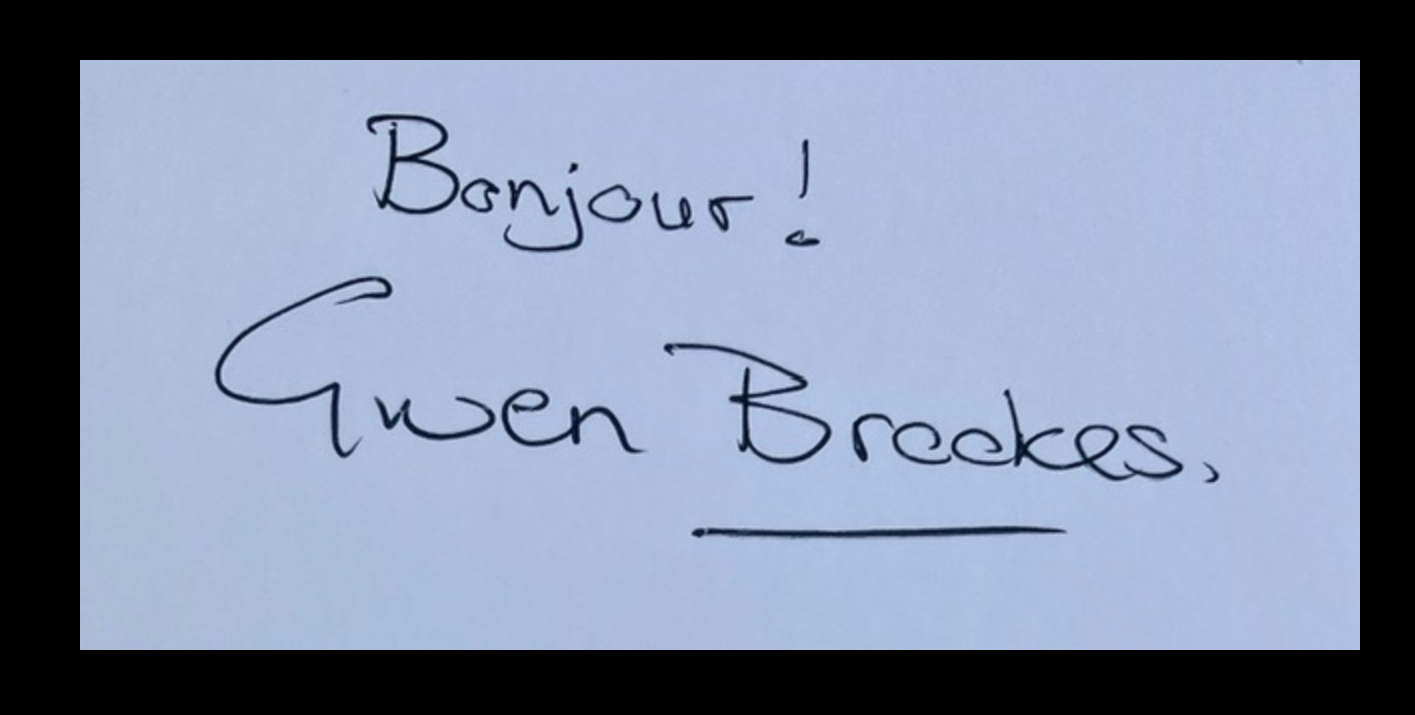 Bonjour!
Gwen Brookes,